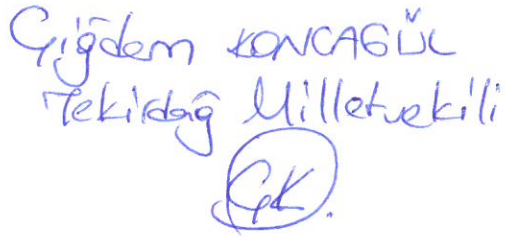 Çiğdem KONCAGÜL
Tekirdağ Milletvekili
ÇK.